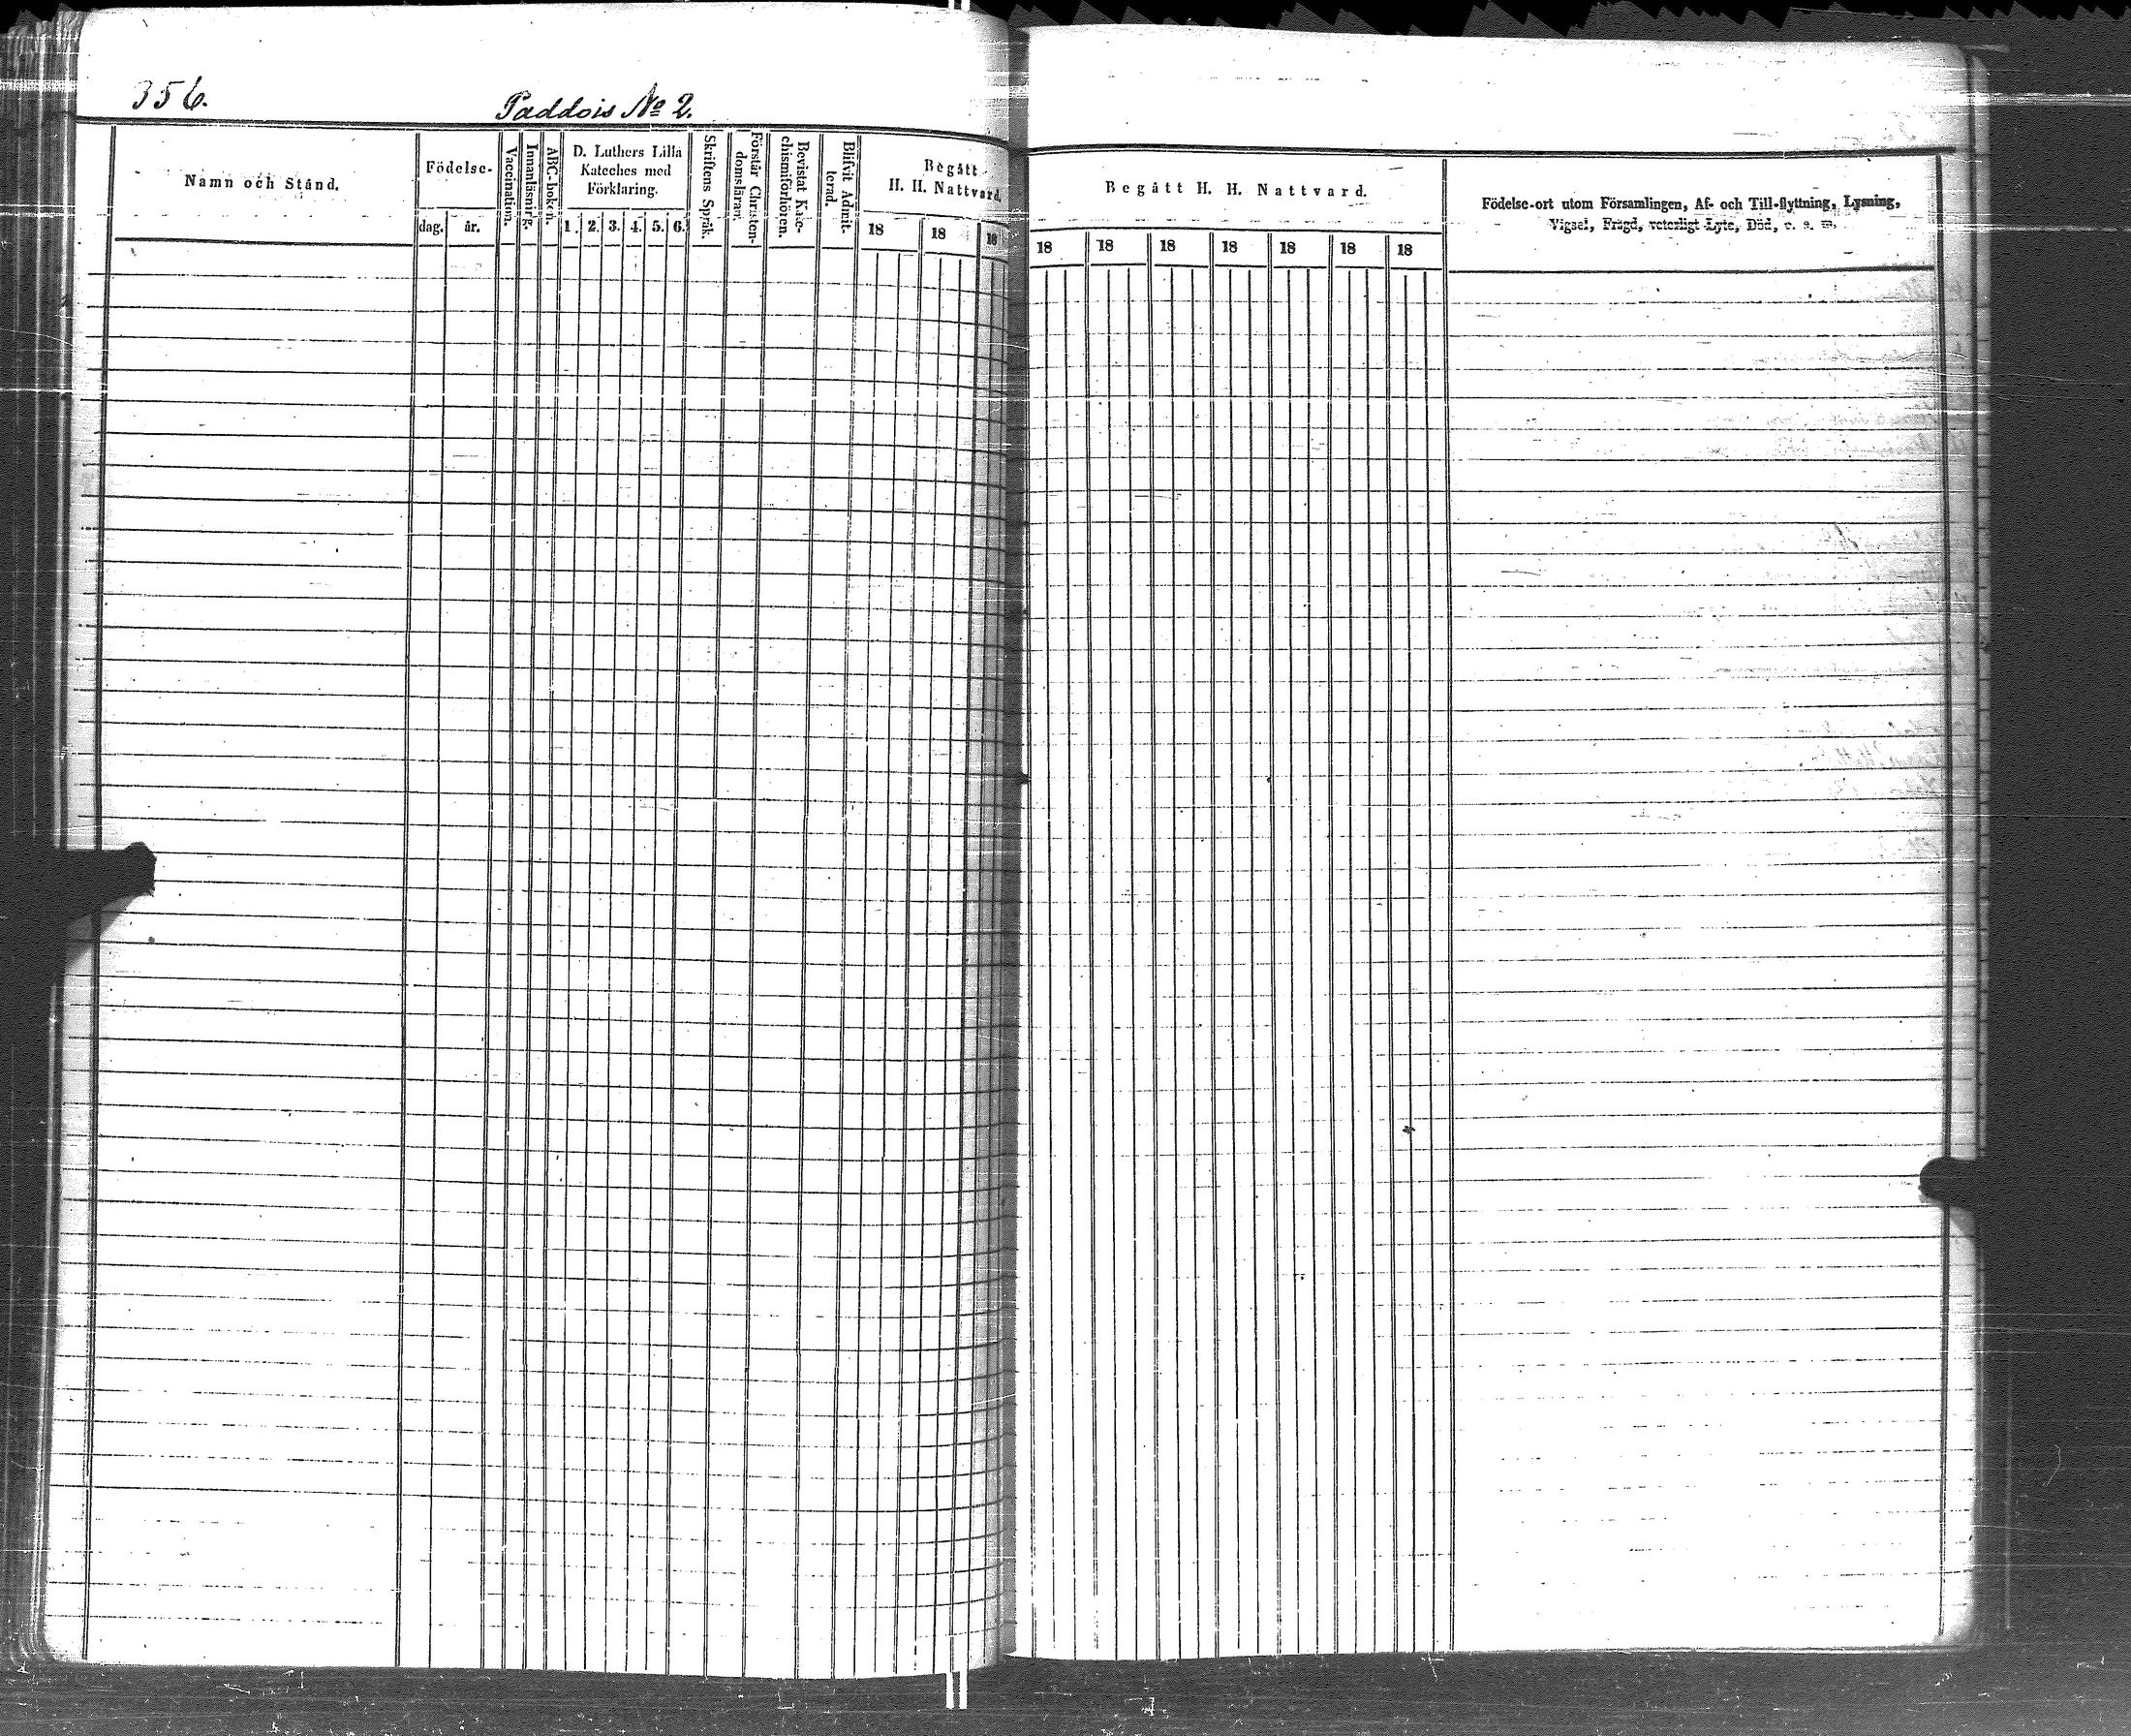 356.
Paddois No 2.
Namn och Stånd.
Födelse-
dag.
år.
Vaccination.
Innanläsning.
ABC-boken.
D. Luthers Lilla
Kateches med
Förklaring.
1. 2. 3. 4. 5. 6.
Skriftens Språk.
Förstår Christen-
domsläran.
Bevistat Kate-
chismiförhören.
Blifvit Admit-
terad.
Begått
H. H. Nattvard.
18 18 18
Begått H. H. Nattvard.
18 18 18 18 18 18 18
Födelse-ort utom Församlingen, Af- och Till-flyttning, Lysning,
Vigsel, Frägd, veterligt Lyte, Död, o. s. v.